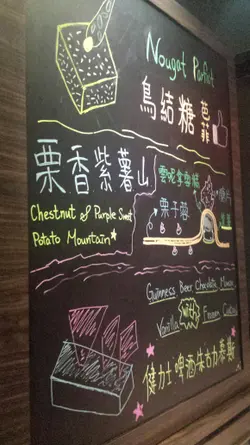 Nougat Parfait
鳥結糖
芭菲
栗香紫薯山
Chestnut & Purple Sweet
Potato Mountain
栗子蓉
Guinness Beer Chocolate Mousse
with
Vanilla Frozen
健力士啤酒朱古力泰斯